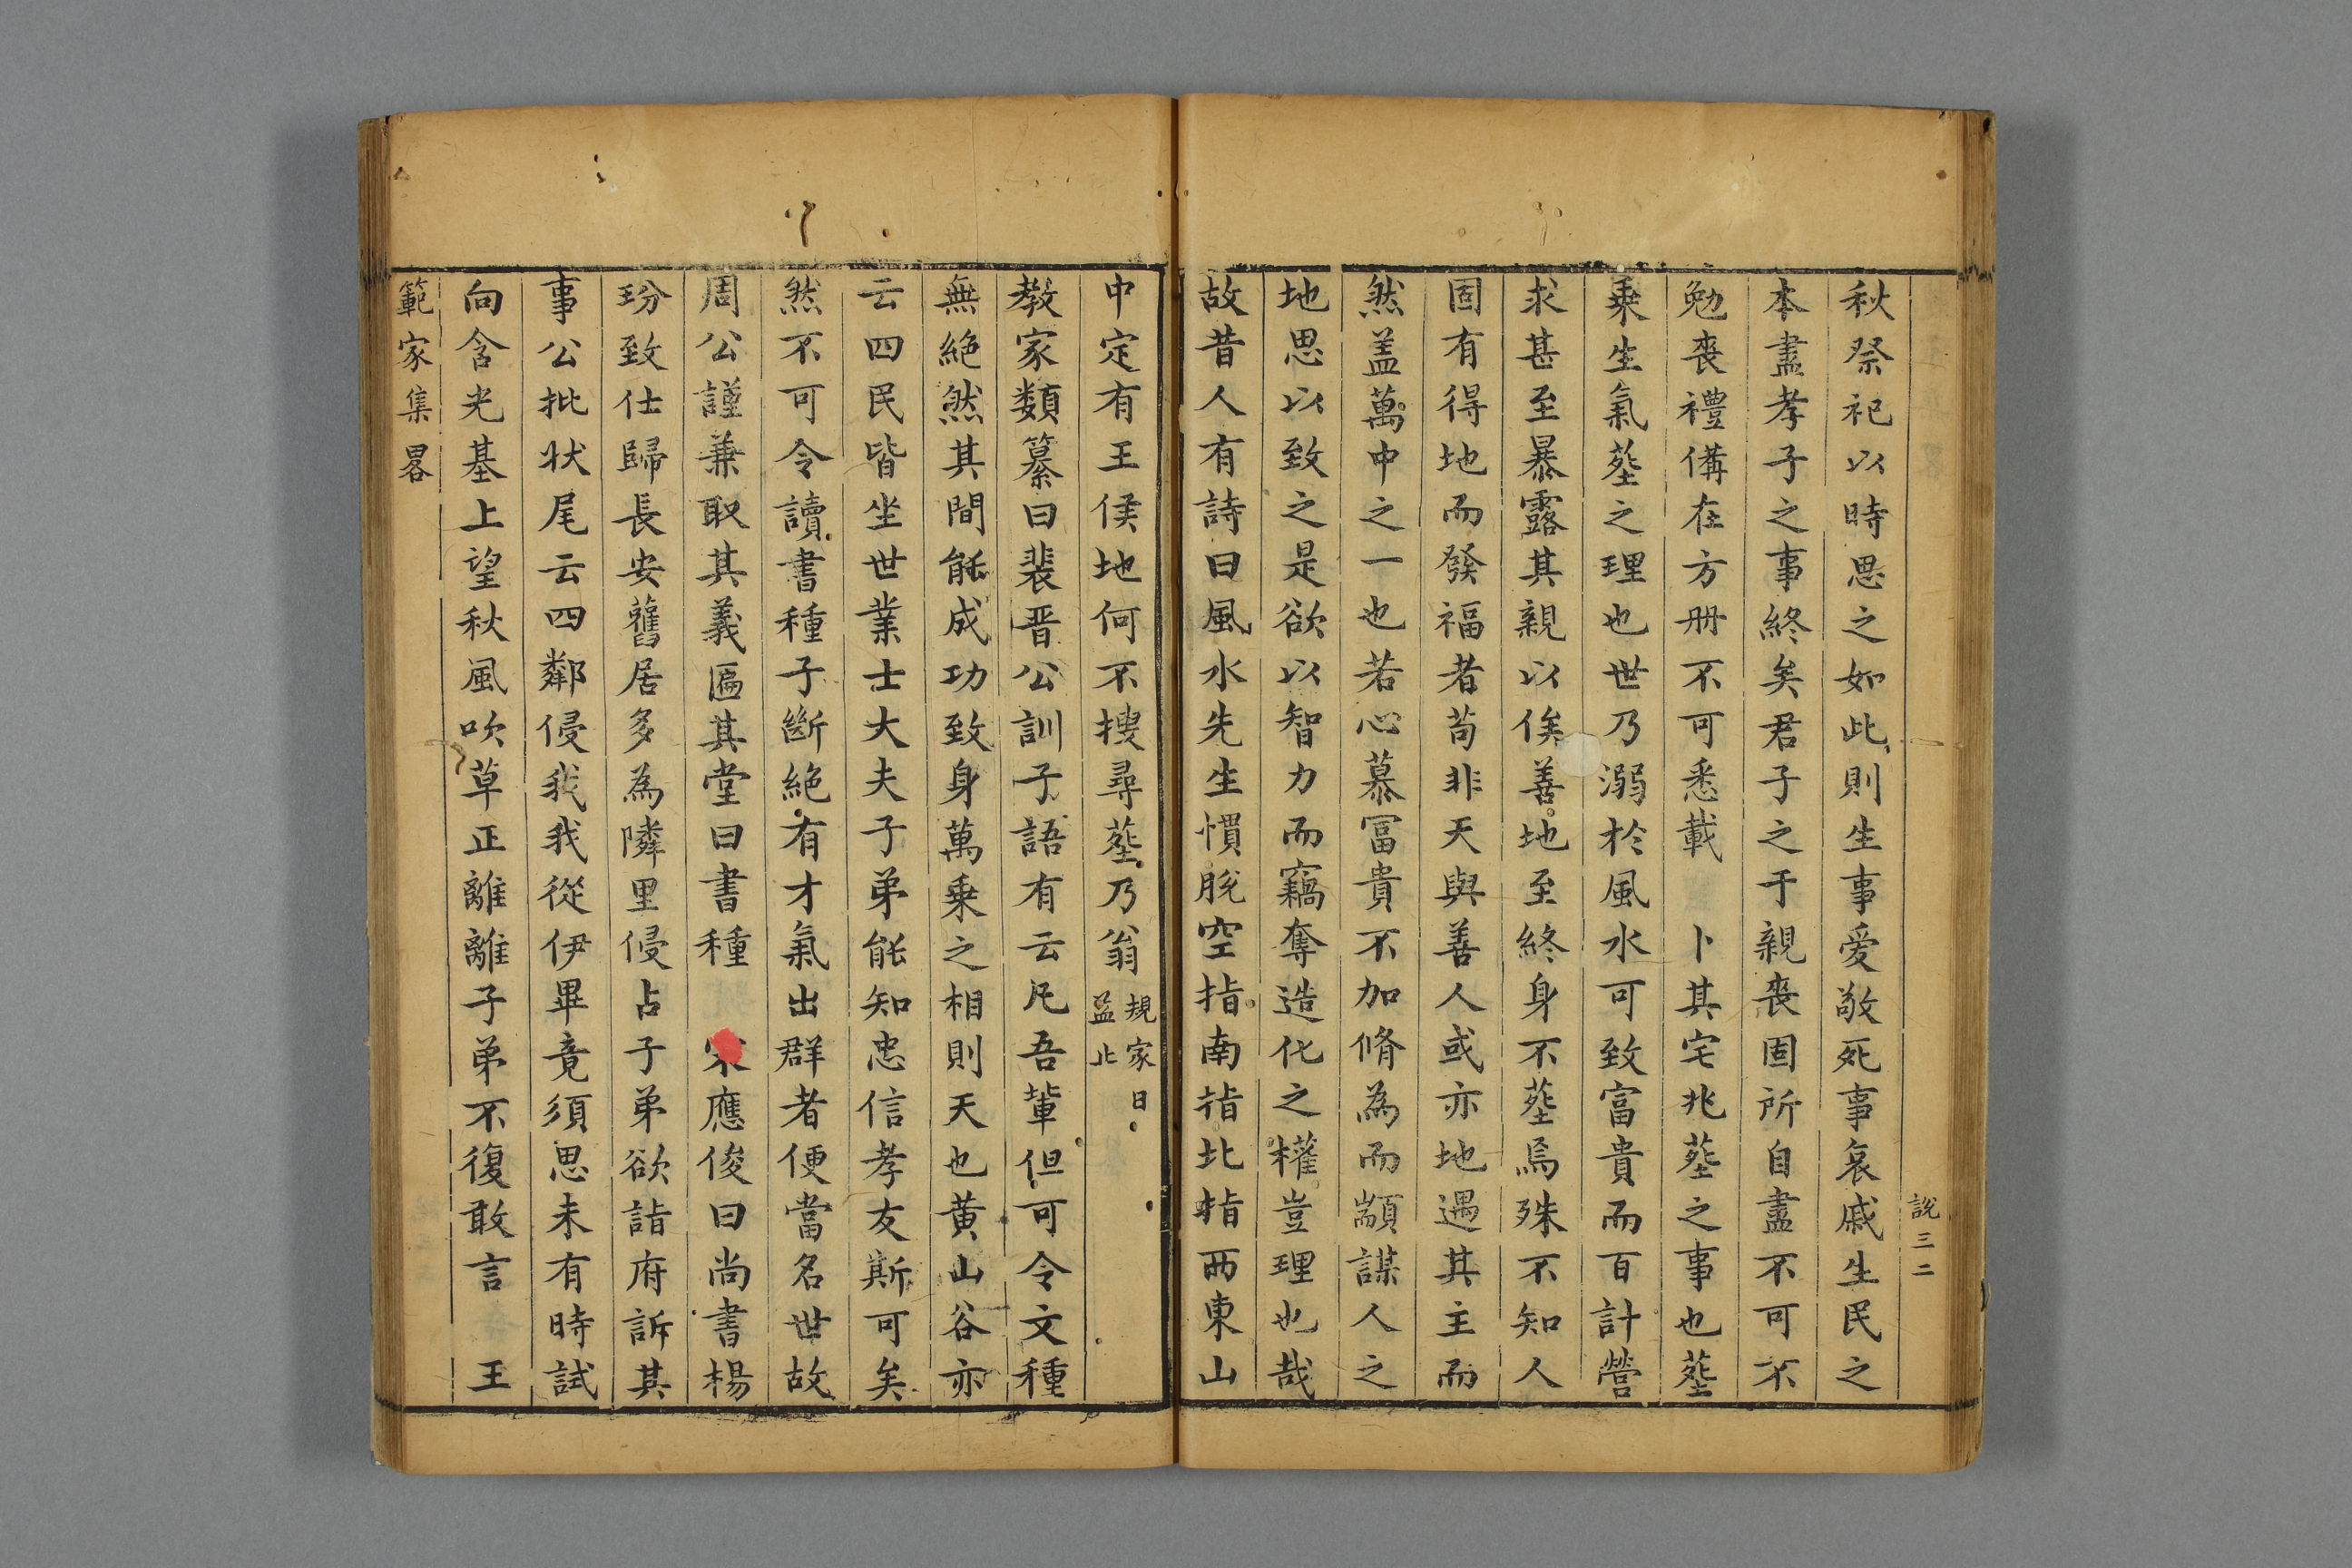 說三二
秋祭祀以時思之如此則生事愛敬死事哀戚生民之
本盡孝子之事終矣君子之于親喪固所自盡不可不
勉喪禮俻在方册不可悉載　卜其宅兆塟之事也塟
乗生氣塟之理也世乃溺於風水可致富貴而百計營
求甚至暴露其親以俟善地至終身不塟焉殊不知人
固有得地而發福者苟非天與善人或亦地遇其主而
然盖萬中之一也若心慕冨貴不加脩為而顓謀人之
地思以致之是欲以智力而竊奪造化之權豈理也哉
故昔人有詩曰風水先生慣脫空指南指北指西東山
中定有王侯地何不搜尋塟乃翁 規家日益止
教家類纂曰裴晋公訓子語有云凡吾輩但可令文種
無絶然其間能成功致身萬乗之相則天也黄山谷亦
云四民皆坐世業士大夫子弟能知忠信孝友斯可矣
然不可令讀書種子斷絶有才氣出群者便當名世故
周公謹兼取其義匾其堂曰書種　宋應俊曰尚書楊
玢致仕歸長安舊居多為隣里侵占子弟欲詣府訴其
事公批状尾云四鄰侵我我從伊畢竟須思未有時試
向含光基上望秋風吹草正離離子弟不復敢言　王
範家集畧